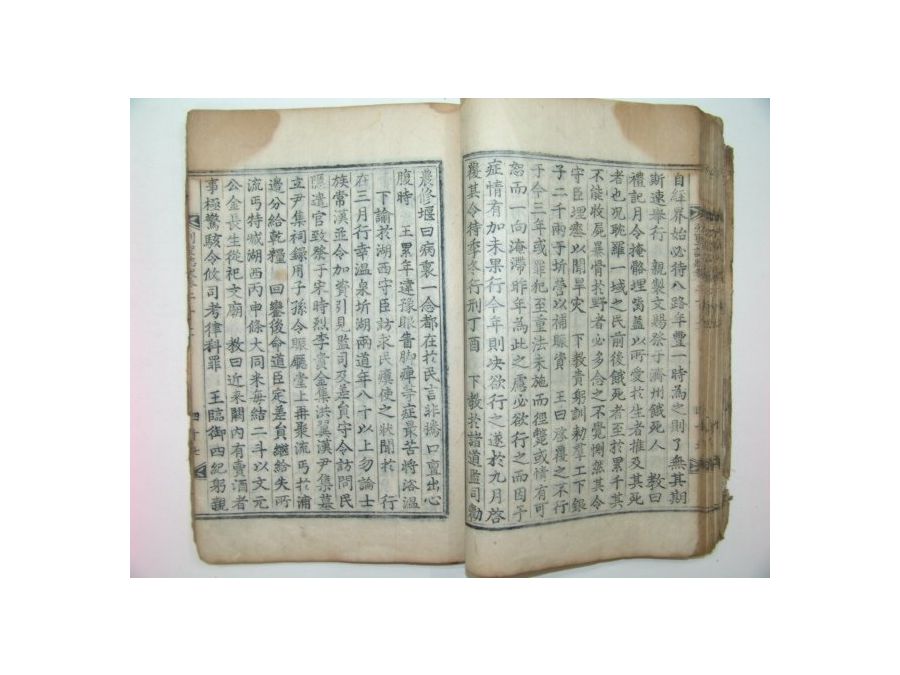 自經界始必待八路年豐一時爲之則了無其期
斯速擧行　親製文賜祭于濟州餓死人　敎曰
禮記月令掩骼埋胔蓋以所愛於生者推及其死
者也况耽羅一域之民前後餓死者至於累千其
不能收屍暴骨於野者必多念之不覺惻然其令
守臣埋瘞以聞旱灾　下敎責躬訓勅羣工下銀
子二千兩于圻營以補賑資　王曰啓覆之不行
于今三年或罪犯至重法未施而徑斃或情有可
恕而一向淹滯昨年爲此之慮必欲行之而因予
症情有加未果行今年則决欲行之遂於九月啓
覆其令待季冬行刑丁酉　下敎於諸道監司勸
農修堰曰病裏一念都在於民言非擔口亶出心
腹時　王累年違豫眼眚脚痺等症最苦將浴溫
下諭於湖西守臣訪求民瘼使之狀聞於　行
在三月行幸溫泉圻湖兩道年八十以上勿論士
族常漢並令加資引見監司及差員守令訪問民
隱遣官致祭于宋時烈李貴金集洪翼漢尹集墓
立尹集祠錄用子孫令賑廳堂上再聚流丐於浦
邊分給乾糧　回鑾後命道臣定差員繼給失所
流丐特减湖西丙申條大同米每結二斗以文元
公金長生從祀文廟　敎曰近來闕內有賣酒者
事極驚駭令攸司考律科罪　王臨御四紀躬親